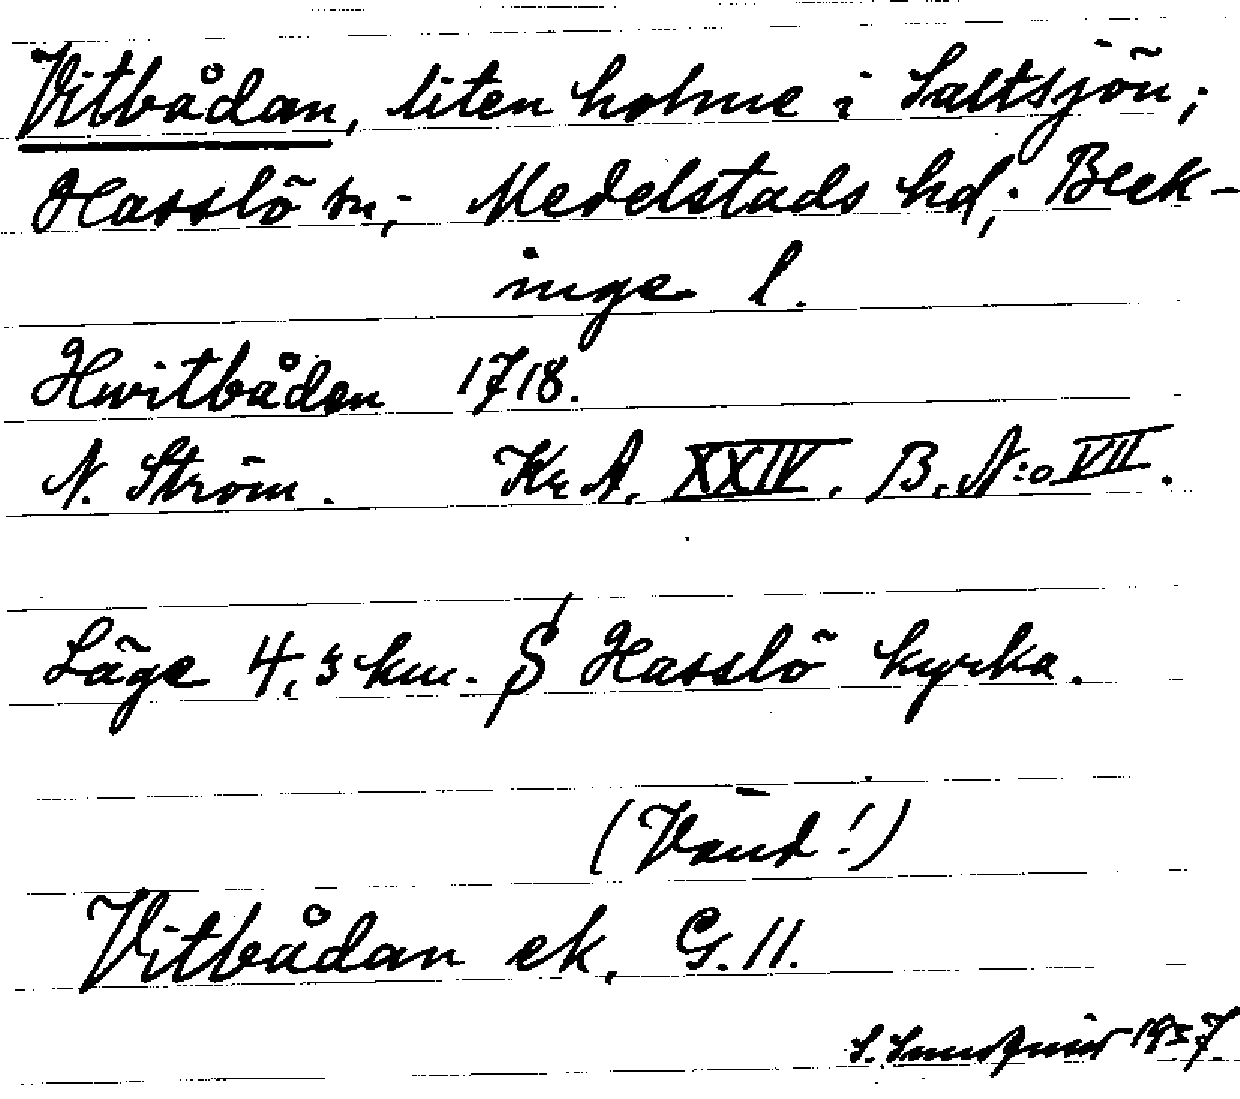 Vitbådan, liten holme i Saltsjön;
Hasslö sn; Medelstads hd; Blek-
inge l.
Hwitbåden 1718.
N. Ström. Kr A. XXIV. B. N:o VII.
Läge 4,3 km. S Hasslö kyrka.
(Vänd!)
Vitbådan ek. G. 11.
S. 1957